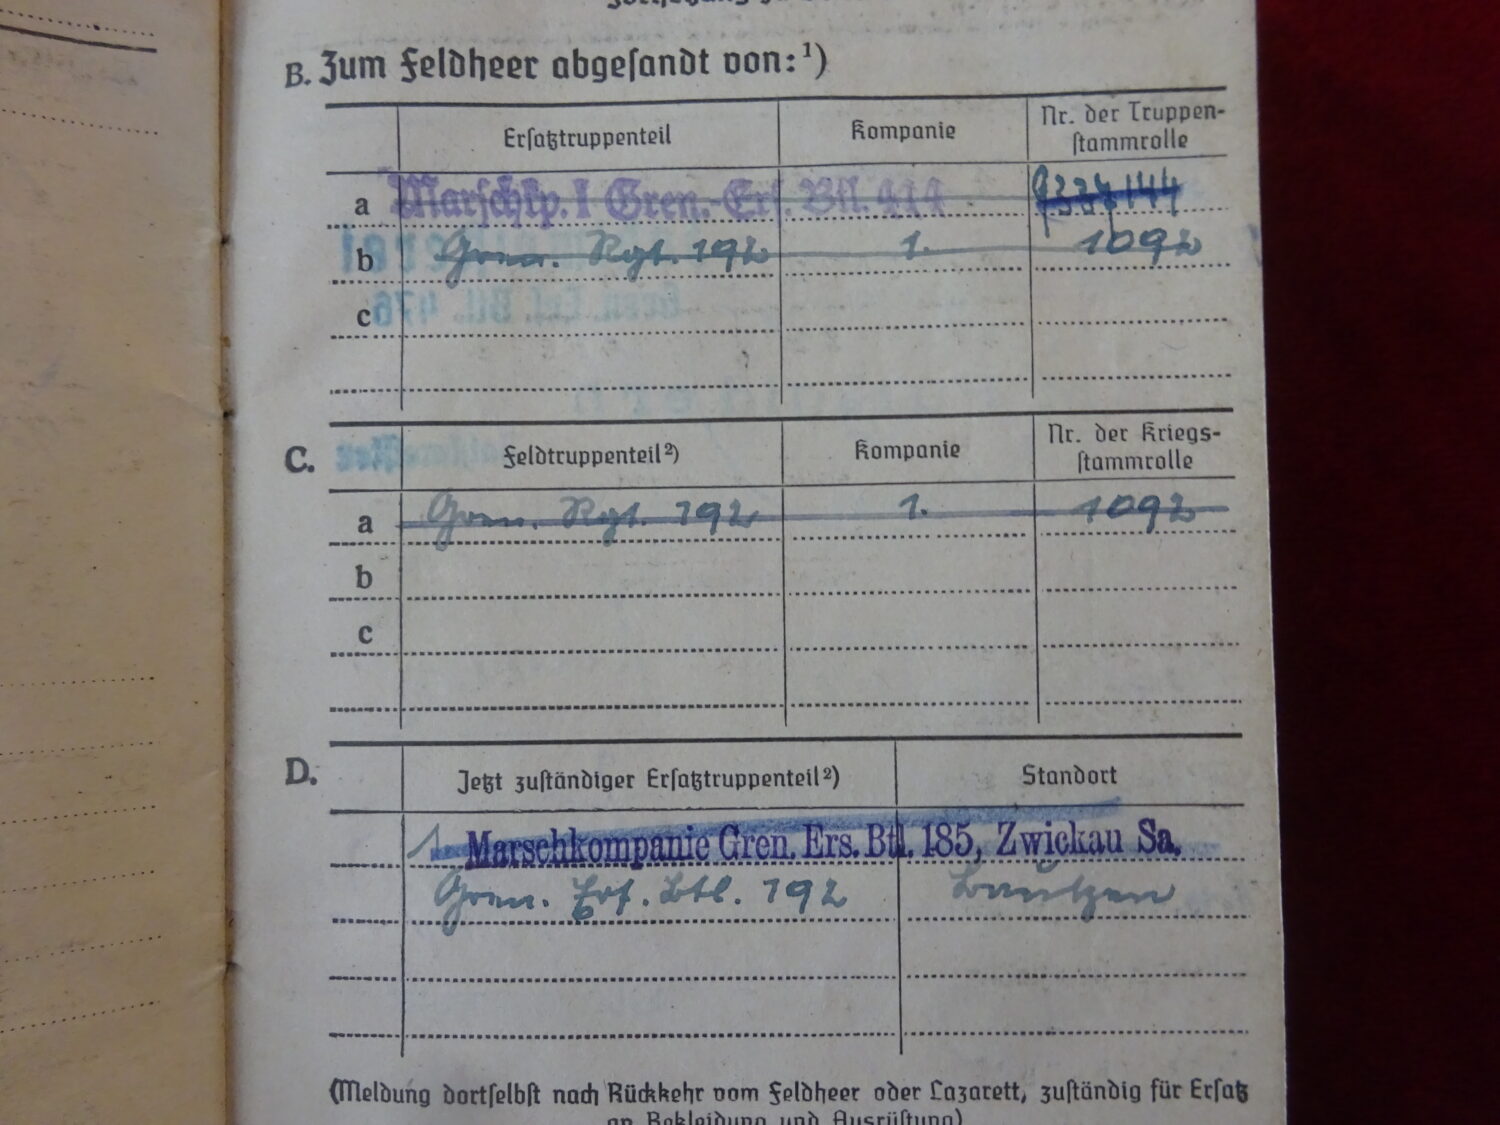 B. Zum Feldheer abgesandt von:¹)
Ersatztruppenteil Kompanie Nr. der Truppen-
stammrolle
a Marschkp. I Gren.-Ers. Btl. 414
b Gren. Rgt. 192 1. 1092
c
Gren. Erf. Btl. 476
C. Feldtruppenteil²) Kompanie Nr. der Kriegs-
stammrolle
a Gren. Rgt. 192 1. 1092
b
c
D. Jetzt zuständiger Ersatztruppenteil²) Standort
Marschkompanie Gren. Ers. Btl. 185, Zwickau Sa.
Gren. Ers. Btl. 192 Bautzen
(Meldung dortselbst nach Rückkehr vom Feldheer oder Lazarett, zuständig für Ersatz
an Bekleidung und Ausrüstung)